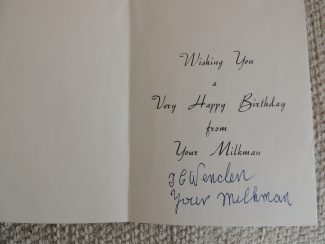 Wishing You
a
Very Happy Birthday
from
Your Milkman
Your Milkman